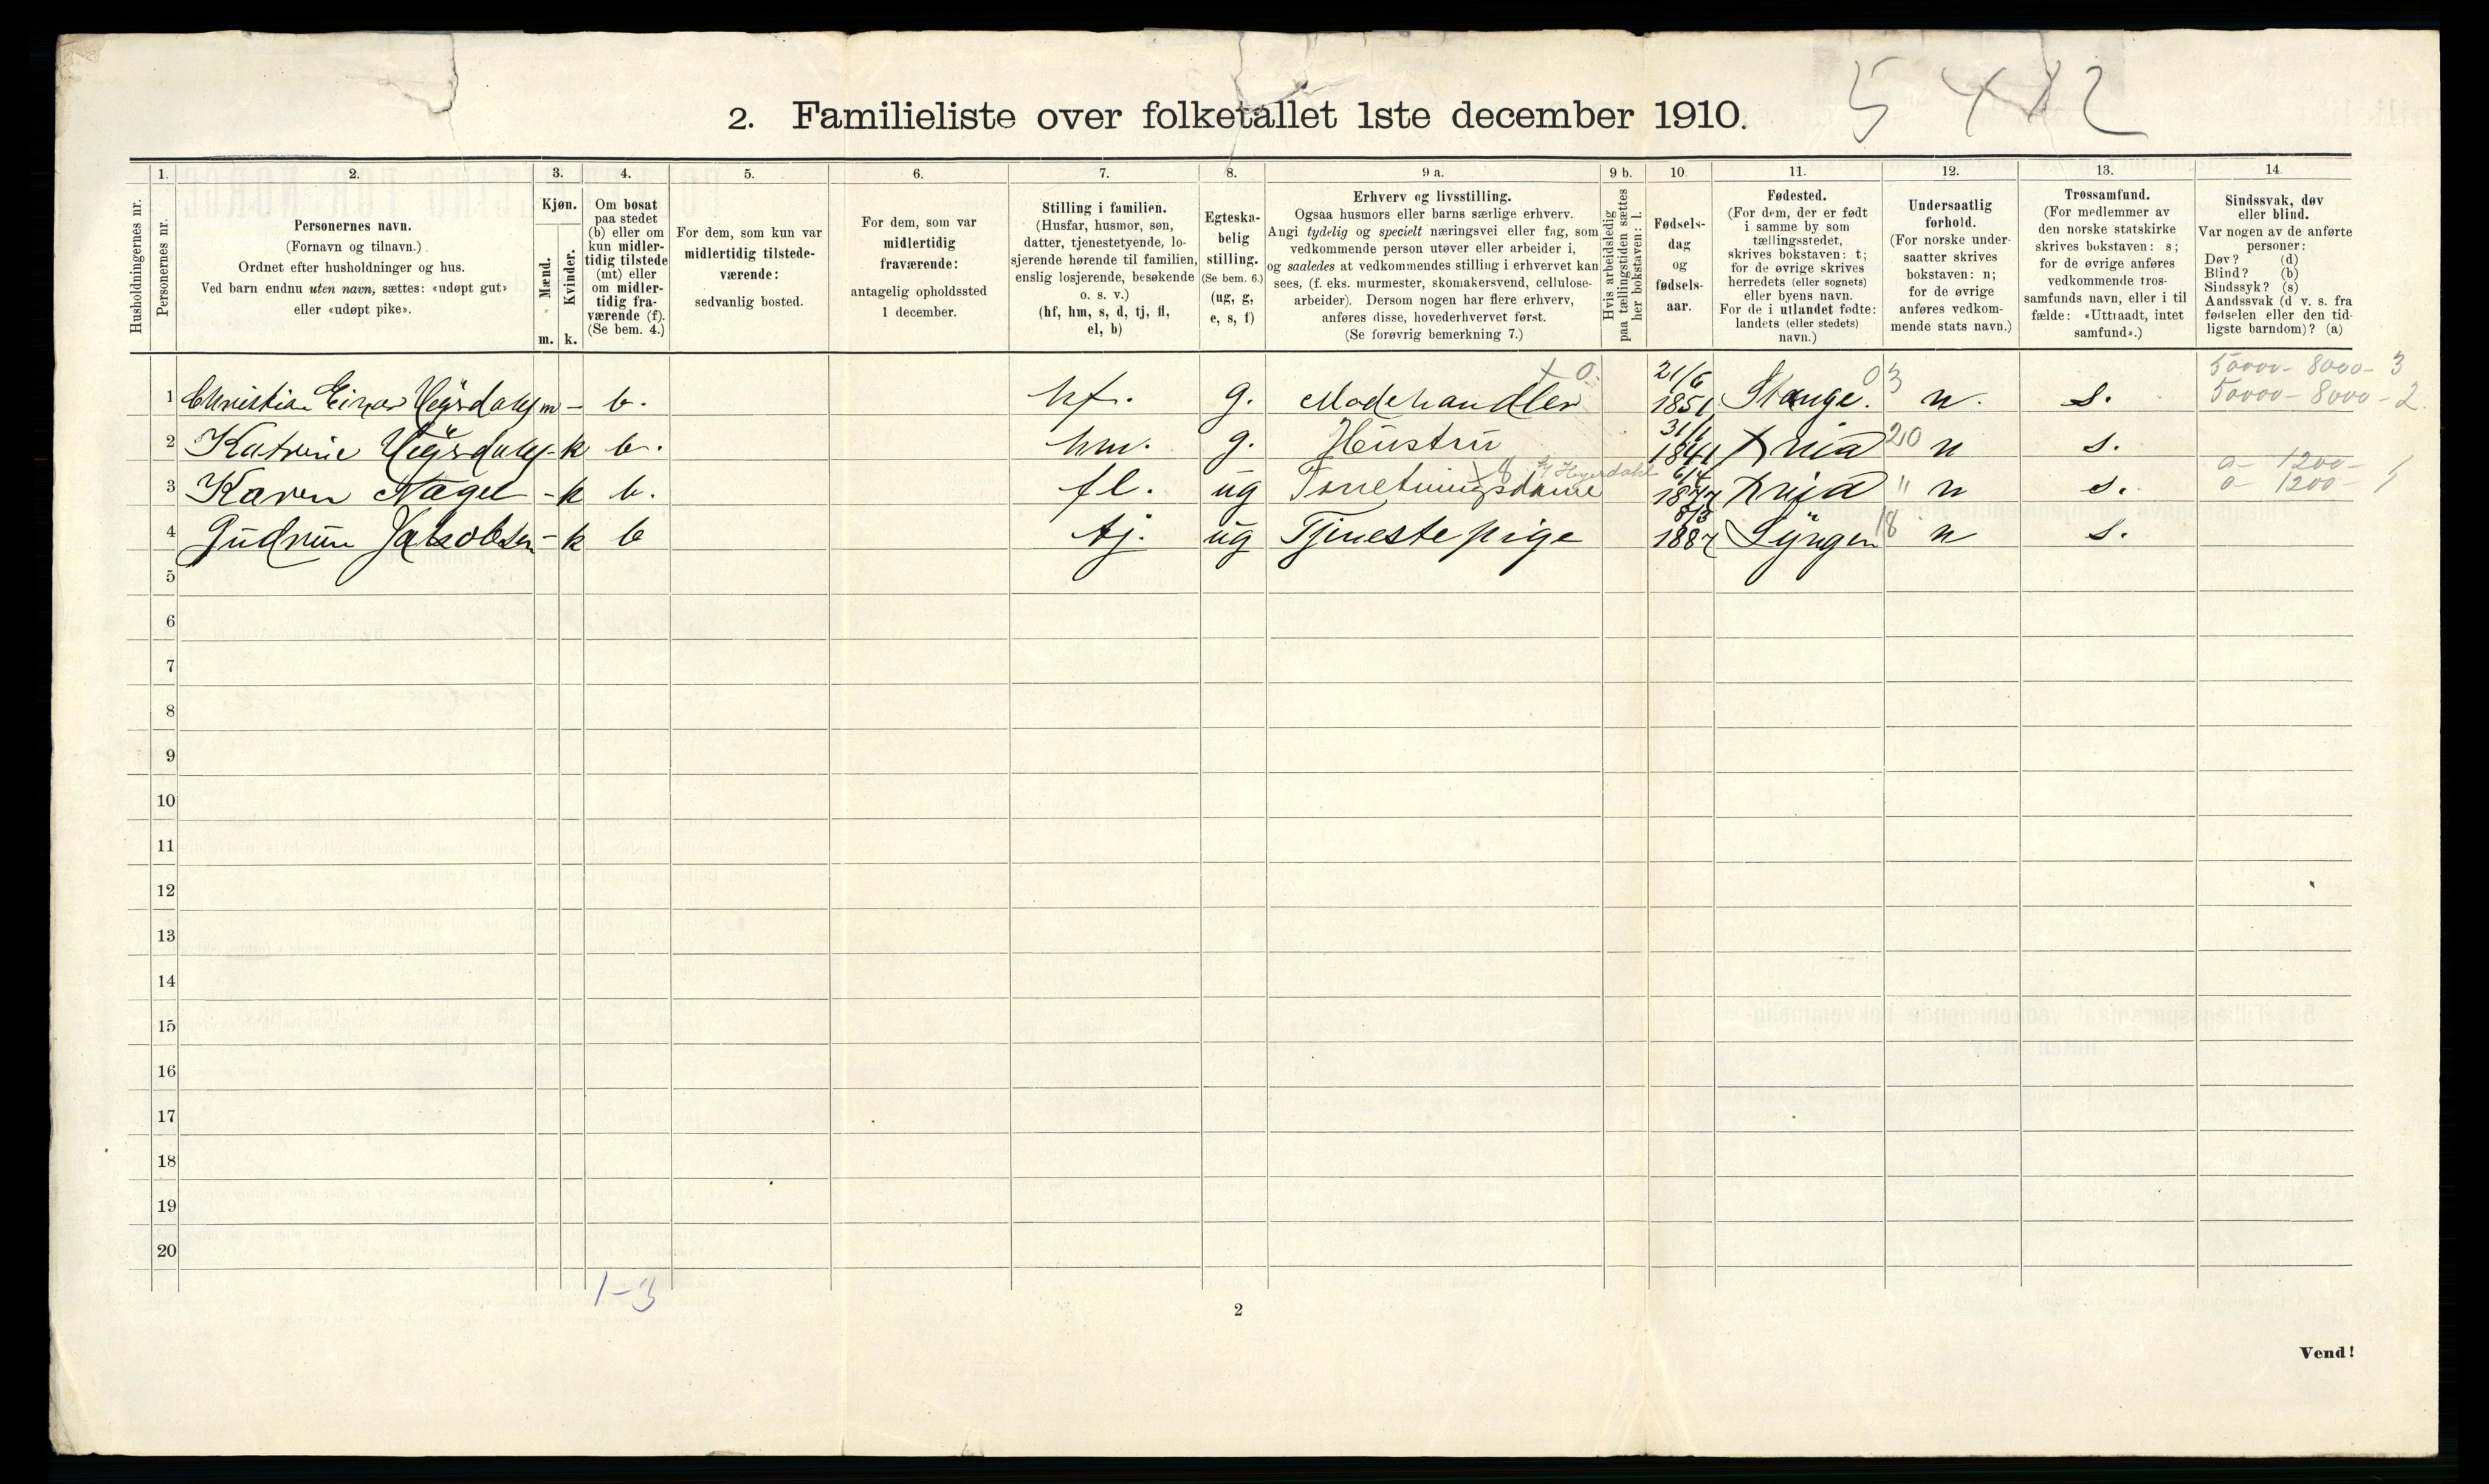 5 4 12
2. Familieliste over folketallet 1ste december 1910.
Husholdningernes nr.
1.
Personernes nr.
2.
Personernes navn.
(Fornavn og tilnavn.)
Ordnet efter husholdninger og hus.
Ved barn endnu uten navn, sættes: «udøpt gut»
eller «udøpt pike».
3.
Kjøn.
Mænd.
Kvinder.
m. k.
4.
Om bosat
paa stedet
(b) eller om
kun midler-
tidig tilstede
(mt) eller
om midler-
tidig fra-
værende (f).
(Se bem. 4.)
5.
For dem, som kun var
midlertidig tilstede-
værende:
sedvanlig bosted.
6.
For dem, som var
midlertidig
fraværende:
antagelig opholdssted
1 december.
7.
Stilling i familien.
(Husfar, husmor, søn,
datter, tjenestetyende, lo-
sjerende hørende til familien,
enslig losjerende, besøkende
o. s. v.)
(hf, hm, s, d, tj, fl,
el, b)
8.
Egteska-
belig
stilling.
(Se bem. 6.)
(ug, g,
e, s, f)
9 a.
Erhverv og livsstilling.
Ogsaa husmors eller barns særlige erhverv.
Angi tydelig og specielt næringsvei eller fag, som
vedkommende person utøver eller arbeider i,
og saaledes at vedkommendes stilling i erhvervet kan
sees, (f. eks. murmester, skomakersvend, cellulose-
arbeider). Dersom nogen har flere erhverv,
anføres disse, hovederhvervet først.
(Se forøvrig bemerkning 7.)
9 b.
Hvis arbeidsledig
paa tællingstiden sættes
her bokstaven: l.
10.
Fødsels-
dag
og
fødsels-
aar.
11.
Fødested.
(For dem, der er født
i samme by som
tællingsstedet,
skrives bokstaven: t;
for de øvrige skrives
herredets (eller sognets)
eller byens navn.
For de i utlandet fødte:
landets (eller stedets)
navn.)
12.
Undersaatlig
forhold.
(For norske under-
saatter skrives
bokstaven: n;
for de øvrige
anføres vedkom-
mende stats navn.)
13.
Trossamfund.
(For medlemmer av
den norske statskirke
skrives bokstaven: s;
for de øvrige anføres
vedkommende tros-
samfunds navn, eller i til
fælde: «Uttraadt, intet
samfund».)
14.
Sindssvak, døv
eller blind.
Var nogen av de anførte
personer:
Døv? (d)
Blind? (b)
Sindssyk? (s)
Aandssvak (d v. s. fra
fødselen eller den tid-
ligste barndom)? (a)
1 Christian Einar m - b. hf. g. Modehandler x 0. 21/6 1851 Stange. 03 n. s. 50000 - 8000 - 3
50000 - 8000 - 2.
2 Katrine - k b. hm. g. Hustru 31/1 1841 Xnia 20 n s.
3 Karen Nagel - k b. fl. ug Forretningsdame x 8 6/4 1877 Xnia " n s. 0 - 1200 - 1
0 - 1200 - 1
4 Gudrun Jakobsen - k b tj. ug Tjenestepige 8/3 1887 Lyngen 18 n s.
5
6
7
8
9
10
11
12
13
14
15
16
17
18
19
20
1-3
2
Vend!